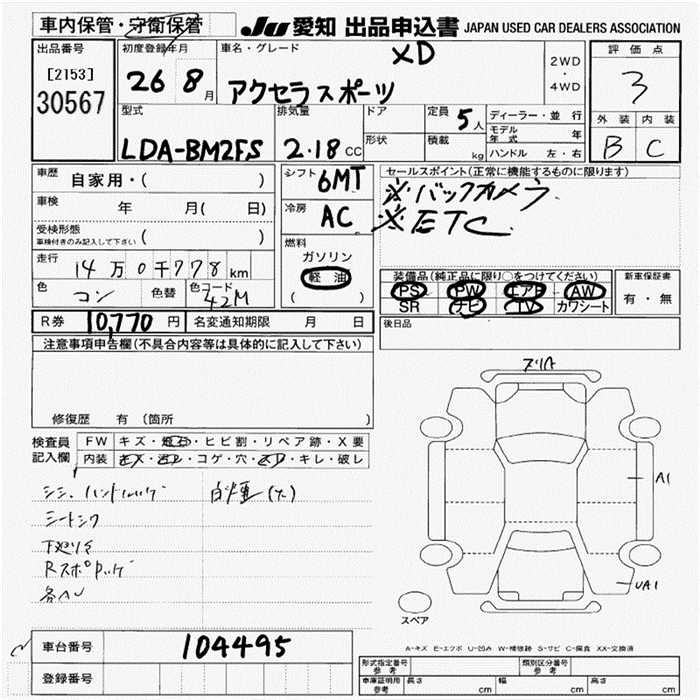 車内保管・守衛保管
JU 愛知 出品申込書 JAPAN USED CAR DEALERS ASSOCIATION
出品番号
[2153]
30567
初度登録年月
26 8月
車名・グレード
XD
アクセラスポーツ
2WD
・
4WD
評価点
3
外装 内装
B C
型式
LDA-BM2FS
排気量
2.18 CC
ドア
形状
定員 5人
積載 kg
ディーラー・並行
モデル年式 年
ハンドル 左・右
車歴 自家用・( )
車検 年 月( 日)
受検形態
車検付きのみ記入して下さい ( )
走行 14万0千778km
色 コン 色替 色コード 42M
シフト 6MT
冷房 AC
燃料
ガソリン
軽油
( )
セールスポイント(正常に機能するものに限ります)
※バックカメラ
※ETC
装備品(純正品に限り○をつけてください)
PS PW エアB AW
SR ナビ TV カワシート
新車保証書
有・無
R券 10,770円 名変通知期限 月 日
後日品
注意事項申告欄(不具合内容等は具体的に記入して下さい)
修復歴 有 (箇所 )
検査員記入欄
FW キズ・飛石・ヒビ割・リペア跡・X要
内装 キズ・汚レ・コゲ・穴・スレ・キレ・破レ
シートシワ
下廻りサ
A1
UA1
スペア
A-キズ E-エクボ U-凹み W-補修跡 S-サビ C-腐食 XX-交換済
車台番号 104495
登録番号
形式指定番号 参考
類別区分番号 参考
車庫証明用 参考 長さ cm 幅 cm 高さ cm